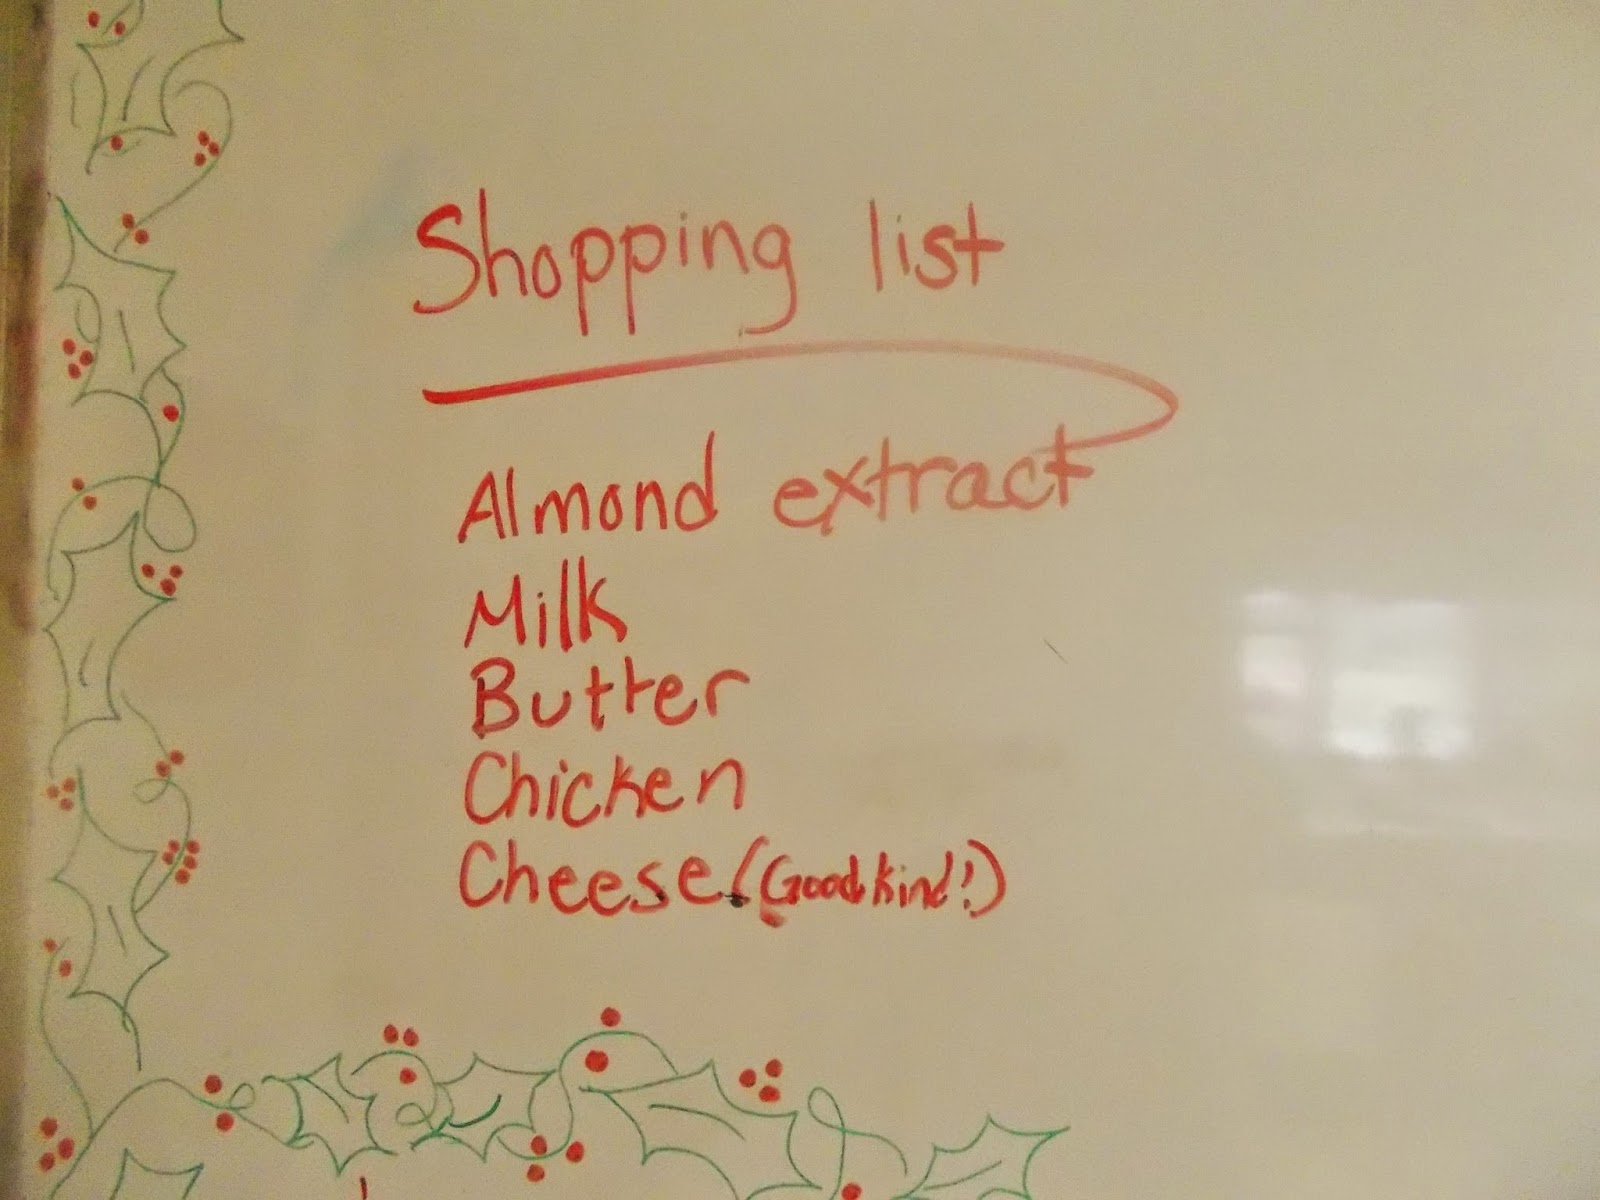 Shopping list
Almond extract
Milk
Butter
Chicken
Cheese (Good kind!)